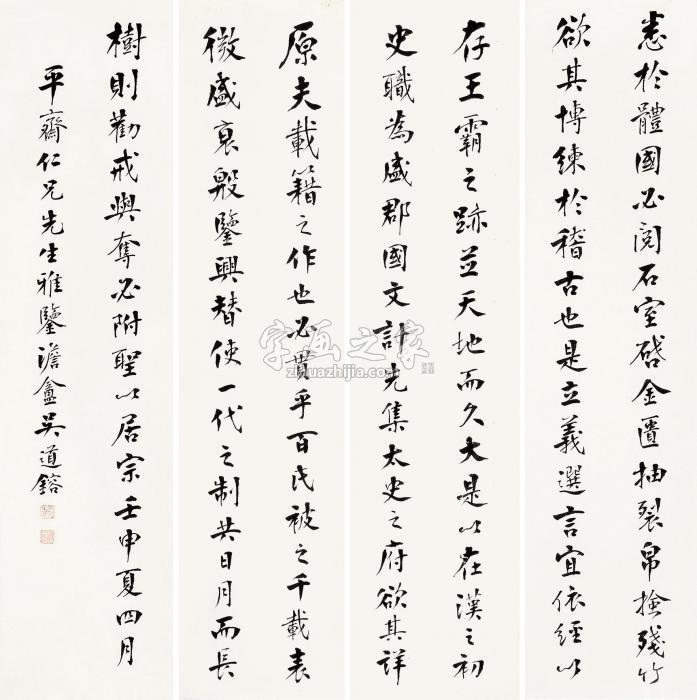 原夫載籍之作也必貫乎百氏被之千載表
徵盛衰殷鑒興替使一代之制共日月而長
存王霸之跡並天地而久大是以在漢之初
史職為盛郡國文計先集太史之府欲其詳
悉於體國必閱石室啟金匱抽裂帛撿殘竹
欲其博練於稽古也是立義選言宜依經以
樹則勸戒與奪必附聖以居宗壬申夏四月
平齋仁兄先生雅鑒澹盦吳道鎔
字画之家
zihuazhijia.com